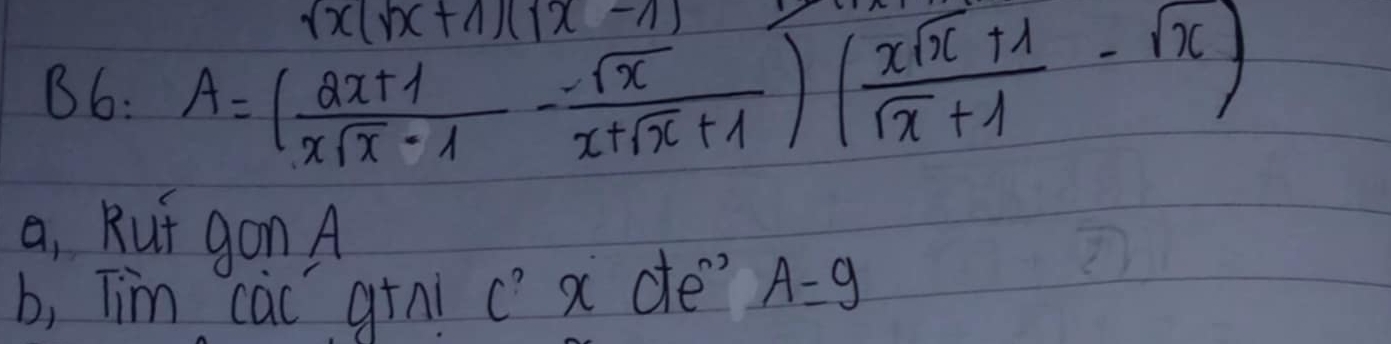 √x(√x+1)(√x-1)
B6: A = ( (2x+1)/(x√x - 1) - √x/(x+√x+1) ) ( (x√x+1)/(√x+1) - √x )
a, Rút gọn A
b, Tìm các gtrị c² x để A=9